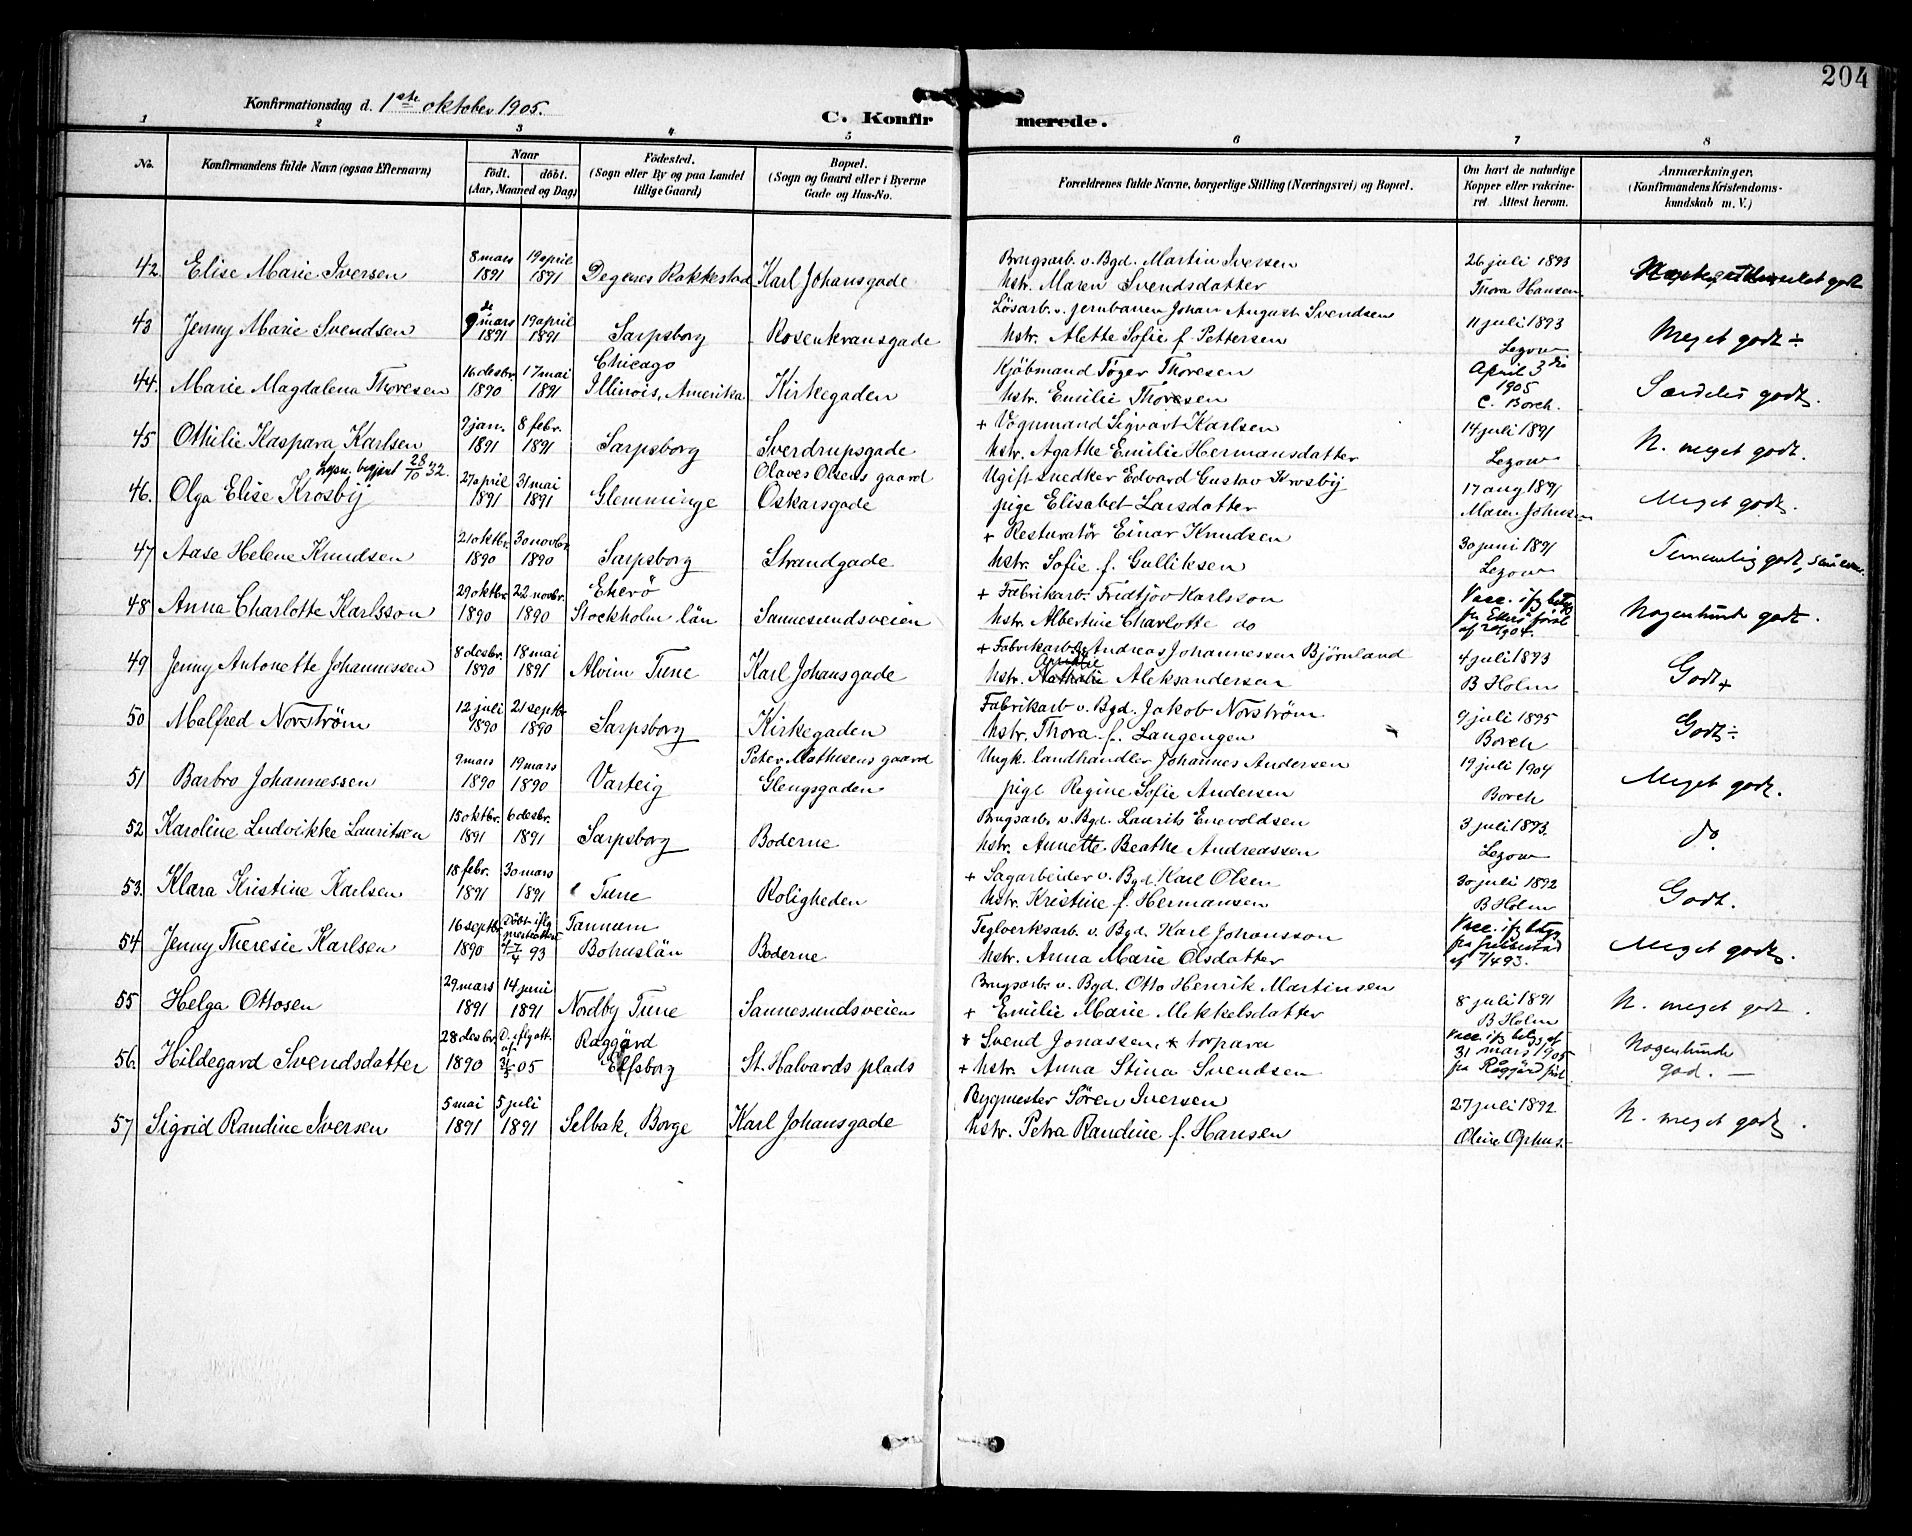 204
Konfirmationsdag d. 1ste oktober 1905.
C. Konfirmerede.
1 2 3 4 5 6 7 8
No. Konfirmandens fulde Navn (ogsaa Efternavn) Naar født. døbt. (Aar, Maaned og Dag) Födested. (Sogn eller By og paa Landet tillige Gaard) Bopæl. (Sogn og Gaard eller i Byerne Gade og Hus-No. Forældrenes fulde Navne, borgerlige Stilling (Næringsvei) og Bopæl. Om havt de naturlige Kopper eller vakcineret. Attest herom. Anmærkninger. (Konfirmandens Kristendomskundskab m. V.)
8 mars 19 april Brugsarb. v. Bgd. Martin Iversen 26 juli 1893
42. Elise Marie Iversen 1891 1891 Degernes Rakkestad Karl Johansgade hstr. Maren Svendsdatter Thora Hansen
9de mars 19 april Lösarb. v. jernbanen Johan August Svendsen 11 juli 1893
43 Jenny Marie Svendsen 1891 1891 Sarpsborg Rosenkransgade hstr. Alette Sofie f. Pettersen Lezow Meget godt ÷
16 desbr. 17 mai Chicago Kjöbmand Töger Thoresen April 3die
44. Marie Magdalena Thoresen 1890 1891 Illinois, Amerika Kirkegaden hstr. Emilie Thoresen 1905 C. Borch. Særdeles godt.
9 jan. 8 febr. + Vognmand Sigvart Karlsen 14 juli 1891
45 Othilie Kaspara Karlsen 1891 1891 Sarpsborg Sverdrupsgade hstr. Agathe Emilie Hermansdatter Lezow N. meget godt.
begjært 28/10 32. 27 april 31 mai Olaves Olsens gaard Ugift snedker Edvard Gustav Krosbÿ 17 aug 1891
46. Olga Elise Krosbÿ 1891 1891 Glemminge Oskarsgade pige Elisabet Larsdatter Maren Johnsen Meget godt.
21 oktbr. 30 novbr. + Resturatör Einar Knudsen 30 juni 1891
47 Aase Helene Knudsen 1890 1890 Sarpsborg Strandgade hstr. Sofie f. Gulliksen Lezow Temmelig godt,
29 oktbr. 22 novbr. Ekerö + Fabrikarb. Fridtjov Karlsson Vacc. ifg betyg
48 Anna Charlotte Karlsson 1890 1890 Stockholm län Sannesundsveien hstr. Albertine Charlotte do fra Ekerö Nogenlunde godt.
8 desbr. 18 mai + Fabrikarb. Andreas Johannessen Björnland 4 juli 1893
49 Jenny Antonette Johannissen 1890 1891 Alvim Tune Karl Johansgade hstr. Nathalie Aleksandersen B Holm Godt +
12 juli 21 septbr Fabrikarb v. Bgd. Jakob Norström 9 juli 1895
50 Malfred Norström 1890 1890 Sarpsborg Kirkegaden hstr. Thora f. Langengen Borch Godt ÷
9 mars 19 mars Peter Mathisens gaard Ungk. landhandler Johannes Andersen 19 juli 1904
51 Barbro Johannessen 1890 1890 Varteig Glengsgaden pige Regine Sofie Andersen Borch Meget godt.
15 oktbr. 6 desbr. Brugsarb. v. Bgd. Laurits Enevoldsen 3 juli 1893.
52 Karoline Ludvikke Lauritsen 1891 1891 Sarpsborg Boderne hstr. Annette Beathe Andreassen Lezow do
18 febr. 30 mars + Sagarbeider v. Bgd. Karl Olsen 30 juli 1892
53. Klara Kristine Karlsen 1891 1891 Tune Roligheden hstr. Kristine f. Hermansen B Holm Godt.
16 septbr Döbt iflg Tannum Teglverksarb. v. Bgd. Karl Johansson Vacc. ifg betyg
54 Jenny Theresie Karlsen 1890 7/4 93 Bohuslän Boderne hstr. Anna Marie Olsdatter af 7/4 93. Meget godt.
29 mars 14 juni Brugsarb. v. Bgd. Otto Henrik Martinsen 8 juli 1891
55 Helga Ottosen 1891 1891 Nordby Tune Sannesundsveien + Emilie Marie Mikkelsdatter B Holm N. meget godt.
28 desbr. D. iflg att. af Raggärd + Svend Jonassen, torpare Vacc. ifg betyg af 31 mars 1905
56. Hildegard Svendsdatter 1890 05 Elfsborg St. Halvards plads + hstr. Anna Stina Svendsen Nogenlunde god. —
5 mai 5 juli Bygmester Sören Iversen 27 juli 1892
57 Sigrid Randine Iversen 1891 1891 Selbak, Borge Karl Johansgade hstr. Petra Randine f. Hansen Oline Ophus N. meget godt.